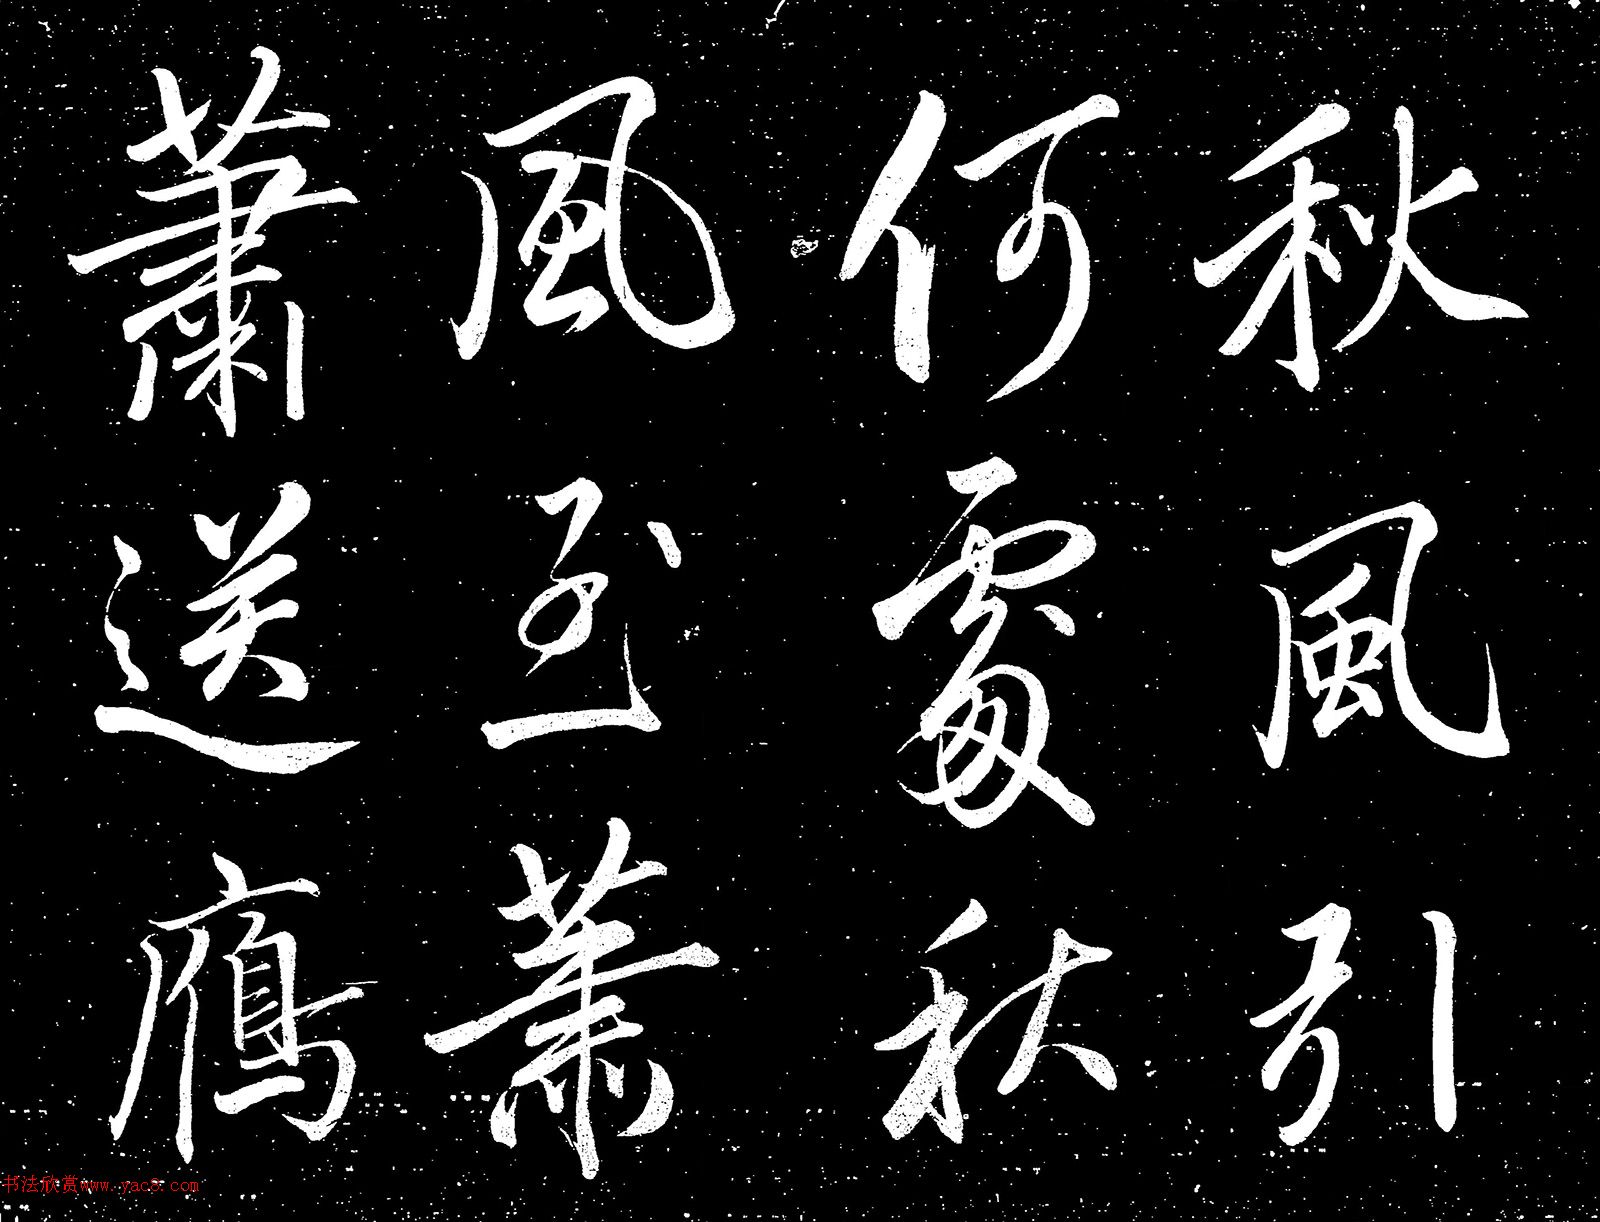 秋風引
何處秋
風至蕭
蕭送鴈
书法欣赏www.yac8.com